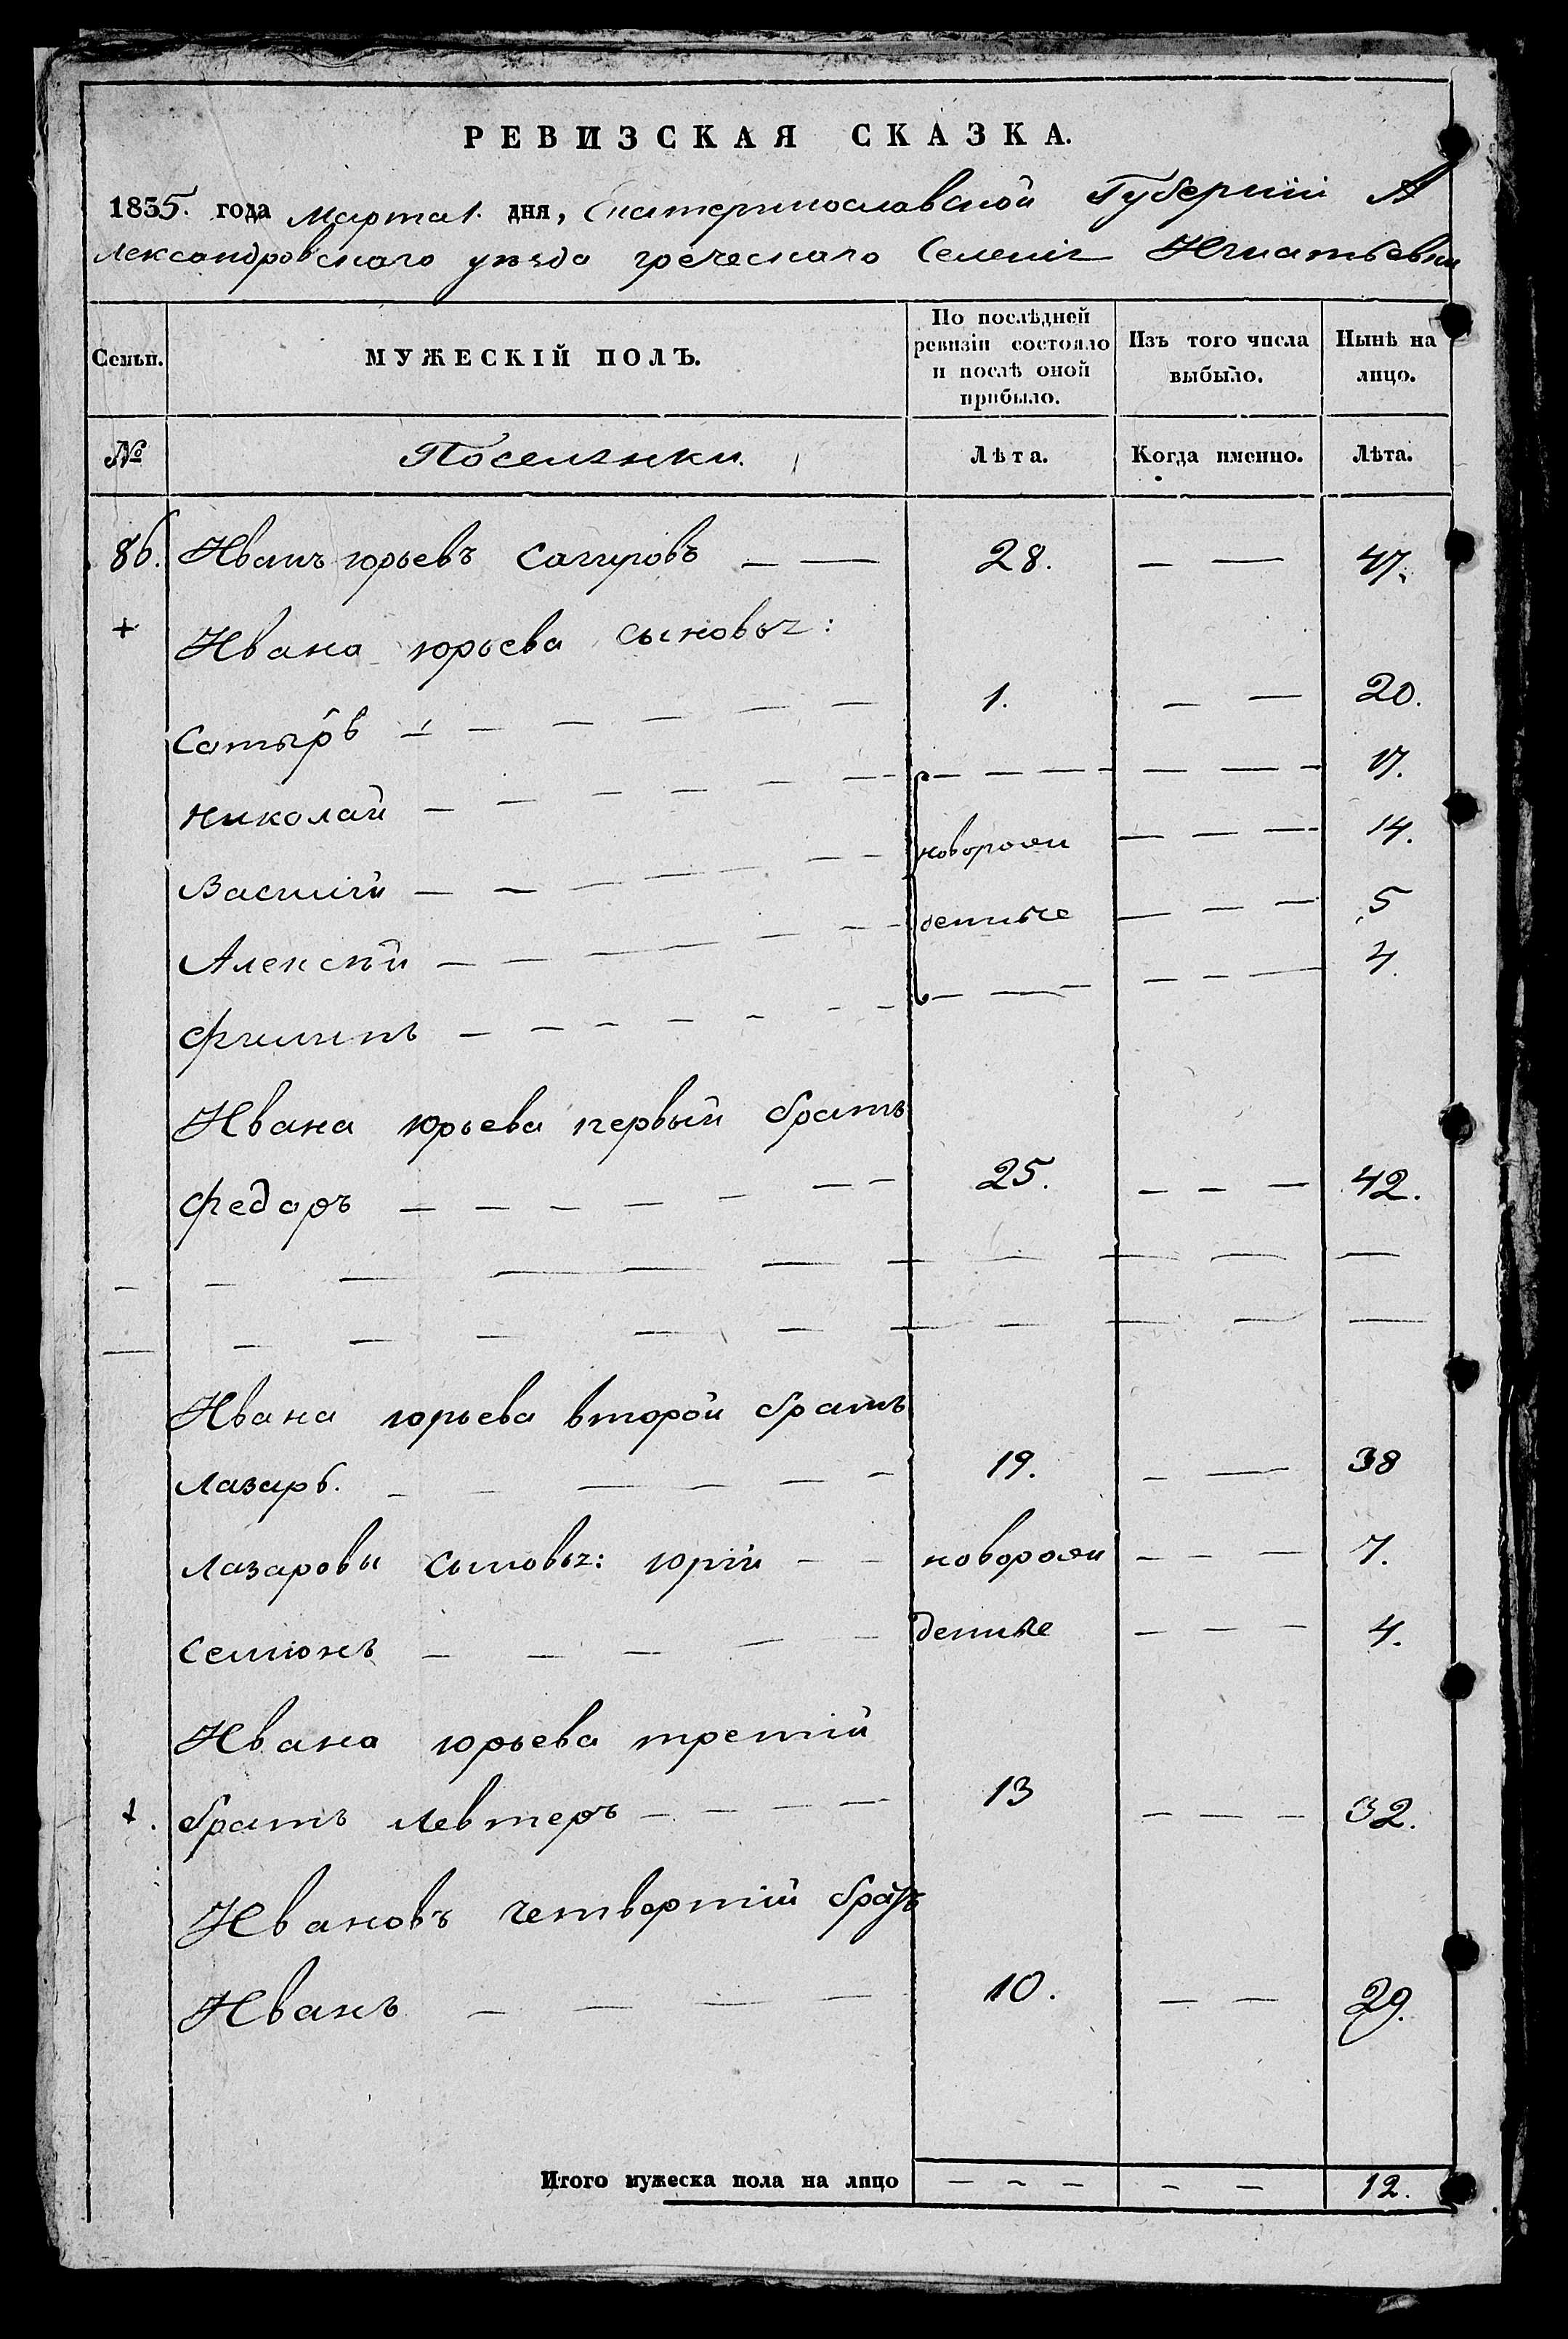 РЕВИЗСКАЯ СКАЗКА.
1835. года Марта 1. дня, Екатеринославской Губернии А
лександровского уѣзда греческаго Селенія Игнатьевки
Семьи. МУЖЕСКІЙ ПОЛЪ. По послѣдней ревизіи состояло и послѣ оной прибыло. Изъ того числа выбыло. Нынѣ на лицо.
№ Поселяне Лѣта. Когда именно. Лѣта.
86. Иванъ юрьевъ Сагировъ — — 28. — — 47.
+ Ивана юрьева сыновья:
Сатырь — — — — — — 1. — — 20.
Николай — — — — — — — — — — — — — 17.
Василій — — — — — — новорож — — — 14.
Алексѣй — — — — — — денные — — — 5
Филипъ — — — — — — — — — — — — — 4.
Ивана юрьева первый братъ
Федоръ — — — — — — 25. — — — 42.
Ивана юрьева второй братъ
Лазарь. — — — — — — 19. — — 38
Лазаровы сыновья: юрій — — новорож — — — 7.
Семионъ — — — — — денные — — — 4.
Ивана юрьева третій
+. братъ Левтеръ — — — — 13 — — — 32.
Ивановъ четвертій братъ
Иванъ — — — — 10. — — 29.
Итого мужеска пола на лицо — — — — — 12.